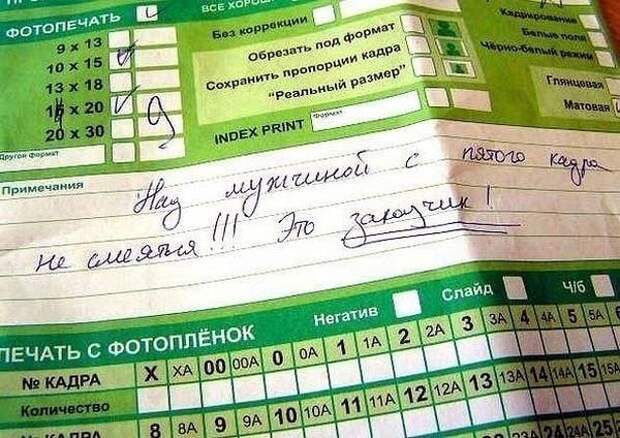 ВСЕ ХОРОШ
ФОТОПЕЧАТЬ
9 x 13
10 x 15
13 x 18
15 x 20
20 x 30
9
Другой формат
Без коррекции
Обрезать под формат
Сохранить пропорции кадра
"Реальный размер"
INDEX PRINT
Формат
Кадрирование
Белые поля
Чёрно-белый режим
Глянцевая
Матовая
Примечания
Над мужчиной с пятого кадра
не смеяться!!! Это заказчик!
ПЕЧАТЬ С ФОТОПЛЁНОК
Негатив
Слайд
Ч/б
№ КАДРА X XA 00 00A 0 0A 1 1A 2 2A 3 3A 4 4A 5 5A 6
Количество
№ КАДРА 8 8A 9 9A 10 10A 11 11A 12 12A 13 13A 14 14A 15 15A
Количество
24 24A 25